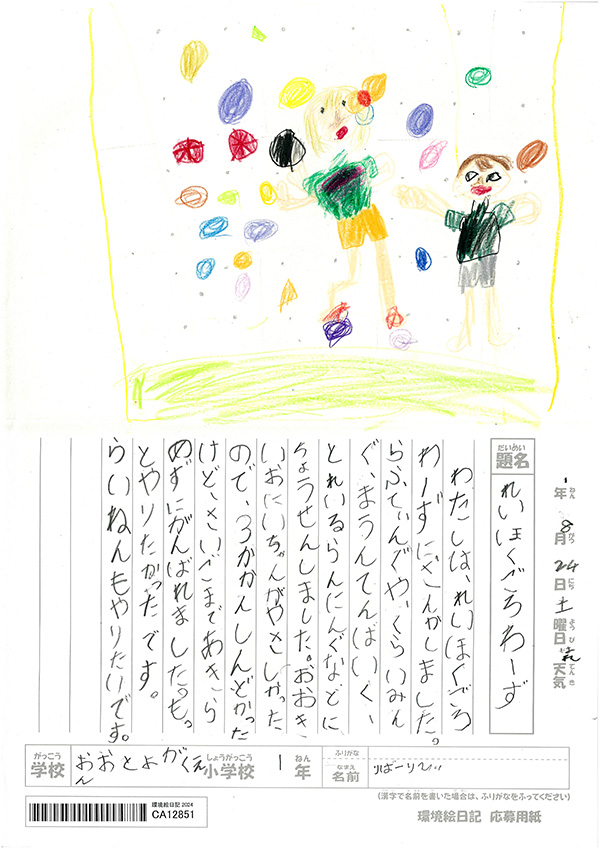 1年8月24日土曜日 天気はれ
題名 れいほくごろわーず
わたしは、れいほくごろ
わーずにさんかしました。
らふてぃんぐや、くらいみん
ぐ、まうんてんばいく、
とれいるらんにんぐなどに
ちょうせんしました。おおき
いおにいちゃんがやさしかった
ので、3かかんしんどかった
けど、さいごまであきら
めずにがんばれました。もっ
とやりたかったです。
らいねんもやりたいです。
学校 おおとよがくえん 小学校 1年
ふりがな
名前
(漢字で名前を書いた場合は、ふりがなをふってください)
環境絵日記 2024
CA12851
環境絵日記 応募用紙